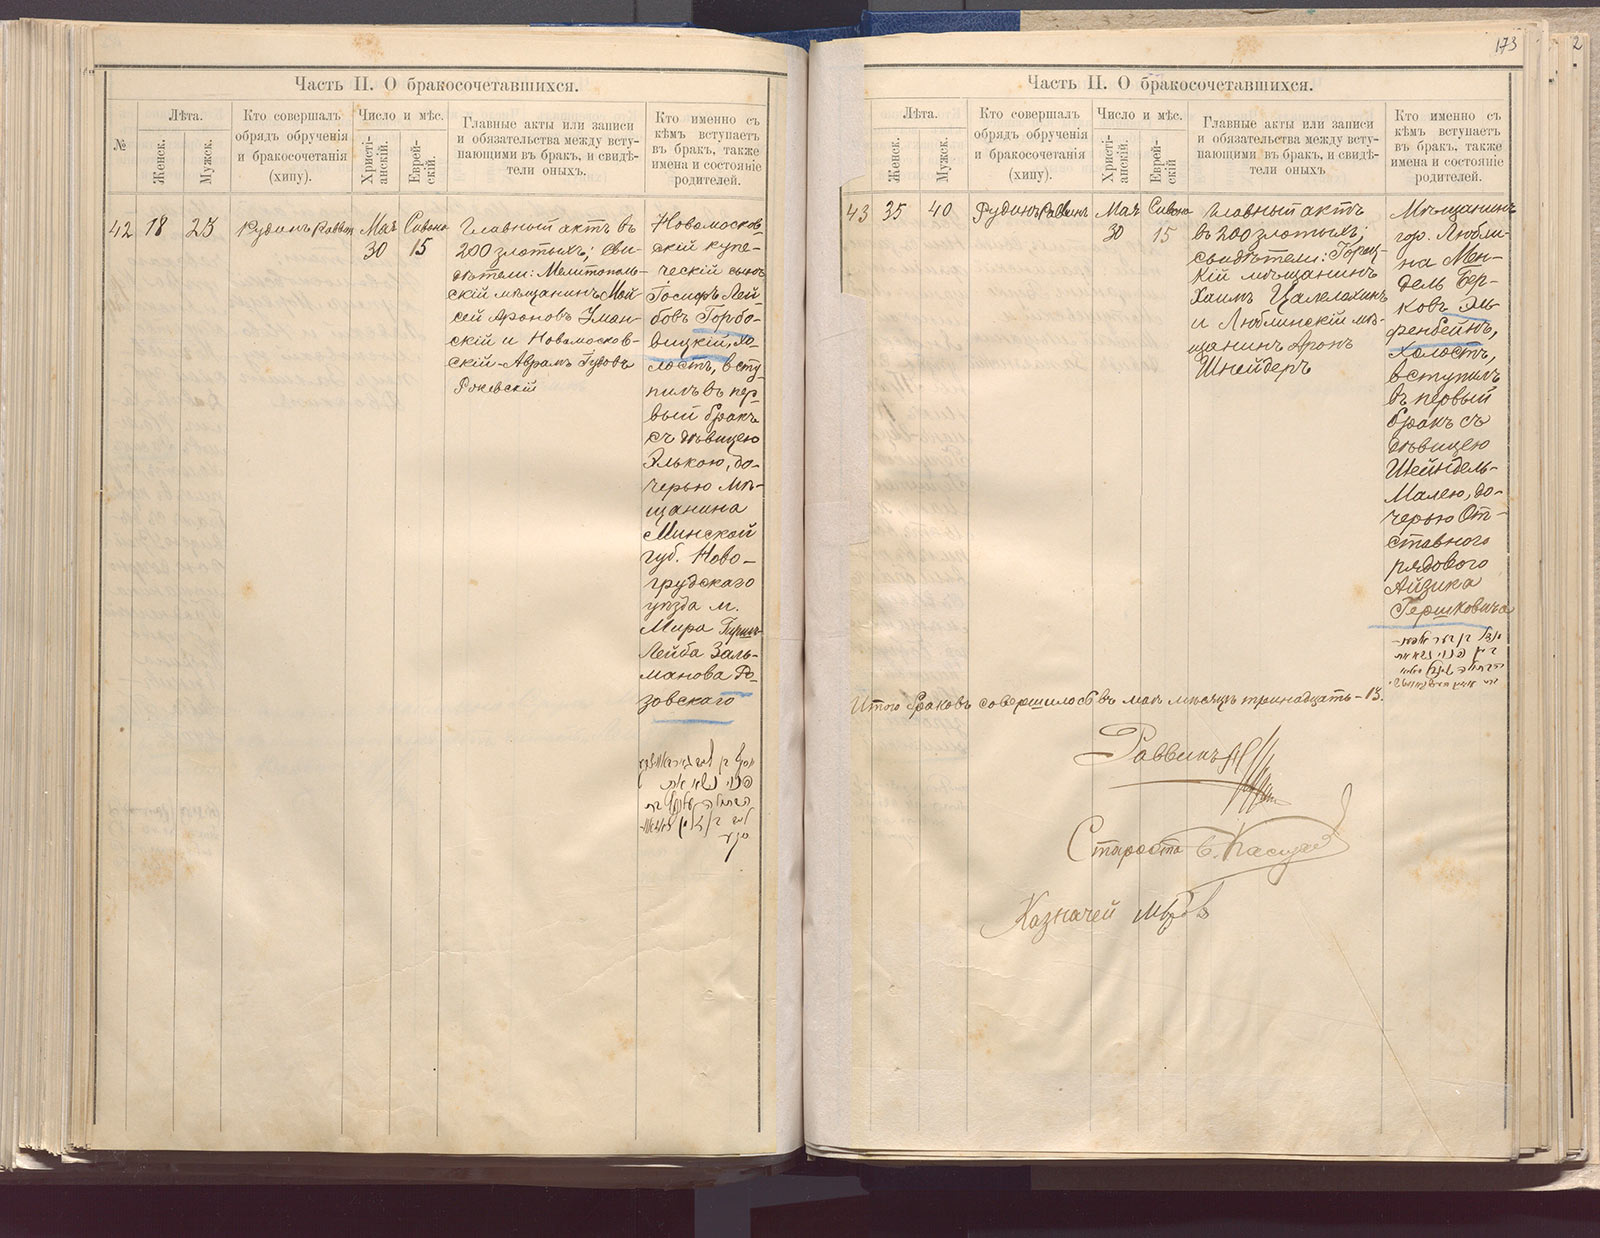 Часть II. О бракосочетавшихся.
№
Лѣта.
Женск.
Мужск.
Кто совершалъ
обрядъ обрученія
и бракосочетанія
(хипу).
Число и мѣс.
Христі-
анскій.
Еврей-
скій.
Главные акты или записи
и обязательства между всту-
пающими въ бракъ, и свидѣ-
тели оныхъ.
Кто именно съ
кѣмъ вступаетъ
въ бракъ, также
имена и состояніе
родителей.
42
18
23
Рудинъ Раввин
Мая
30
Сивона
15
Главный актъ въ
200 злотыхъ; сви-
дѣтели: Мелитополь-
скій мѣщанинъ Мой-
сей Ароновъ Уман-
скій и Новомосков-
скій - Аврамъ
Новомосков-
скій купе-
ческій сынъ
Іосифъ Лей-
бовъ Горбо-
вицкій, хо-
лостъ, всту-
пилъ въ пер-
вый бракъ
съ дѣвицею
Элькою, до-
черью мѣ-
щанина
Минской
губ. Ново-
грудскаго
уѣзда м.
Мира Гирша-
Лейба Заль-
манова Ро-
зовскаго
173
2
Часть II. О бракосочетавшихся.
Лѣта.
Женск.
Мужск.
Кто совершалъ
обрядъ обрученія
и бракосочетанія
(хипу).
Число и мѣс.
Христі-
анскій.
Еврей-
скій
Главные акты или записи
и обязательства между всту-
пающими въ бракъ, и свидѣ-
тели оныхъ
Кто именно съ
кѣмъ вступаетъ
въ бракъ, также
имена и состояніе
родителей.
43
35
40
Рудинъ Раввинъ
Мая
30
Сивона
15
Главный актъ
въ 200 злотыхъ;
свидѣтели: Горец-
кій мѣщанинъ
Хаимъ Цалелахинъ
и Люблинскій мѣ-
щанинъ Аронъ
Шнейдеръ
Мѣщанинъ
гор. Любли-
на Мен-
дель Бер-
ковъ Эль-
фенбейнъ,
холостъ,
вступилъ
въ первый
бракъ съ
дѣвицею
Шейндель-
Малею, до-
черью От-
ставного
рядового
Айзика
Гершковича
Итого браковъ совершилось въ маѣ мѣсяцѣ тринадцать - 13.
Раввинъ
Староста
Казначей